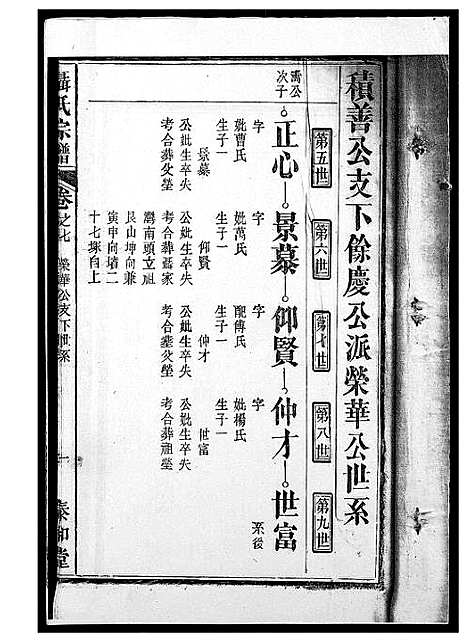 積善公支下餘慶公派榮華公世系
第五世
第六世
第七世
第八世
第九世
濡公
次子
正心
景慕
仰賢
仲才
世富
系後
字
妣曹氏
生子一
景慕
公妣生卒失
考合葬父塋
字
妣萬氏
生子一
仰賢
公妣生卒失
考合葬蔦家
灣南頭立祖
艮山坤向兼
寅申向墳二
十七塚自上
字
配傅氏
生子一
仲才
公妣生卒失
考合葬父塋
字
妣楊氏
生子一
世富
公妣生卒失
考合葬祖塋
氏宗譜
卷之七
榮華公支下世系
一
泰和堂